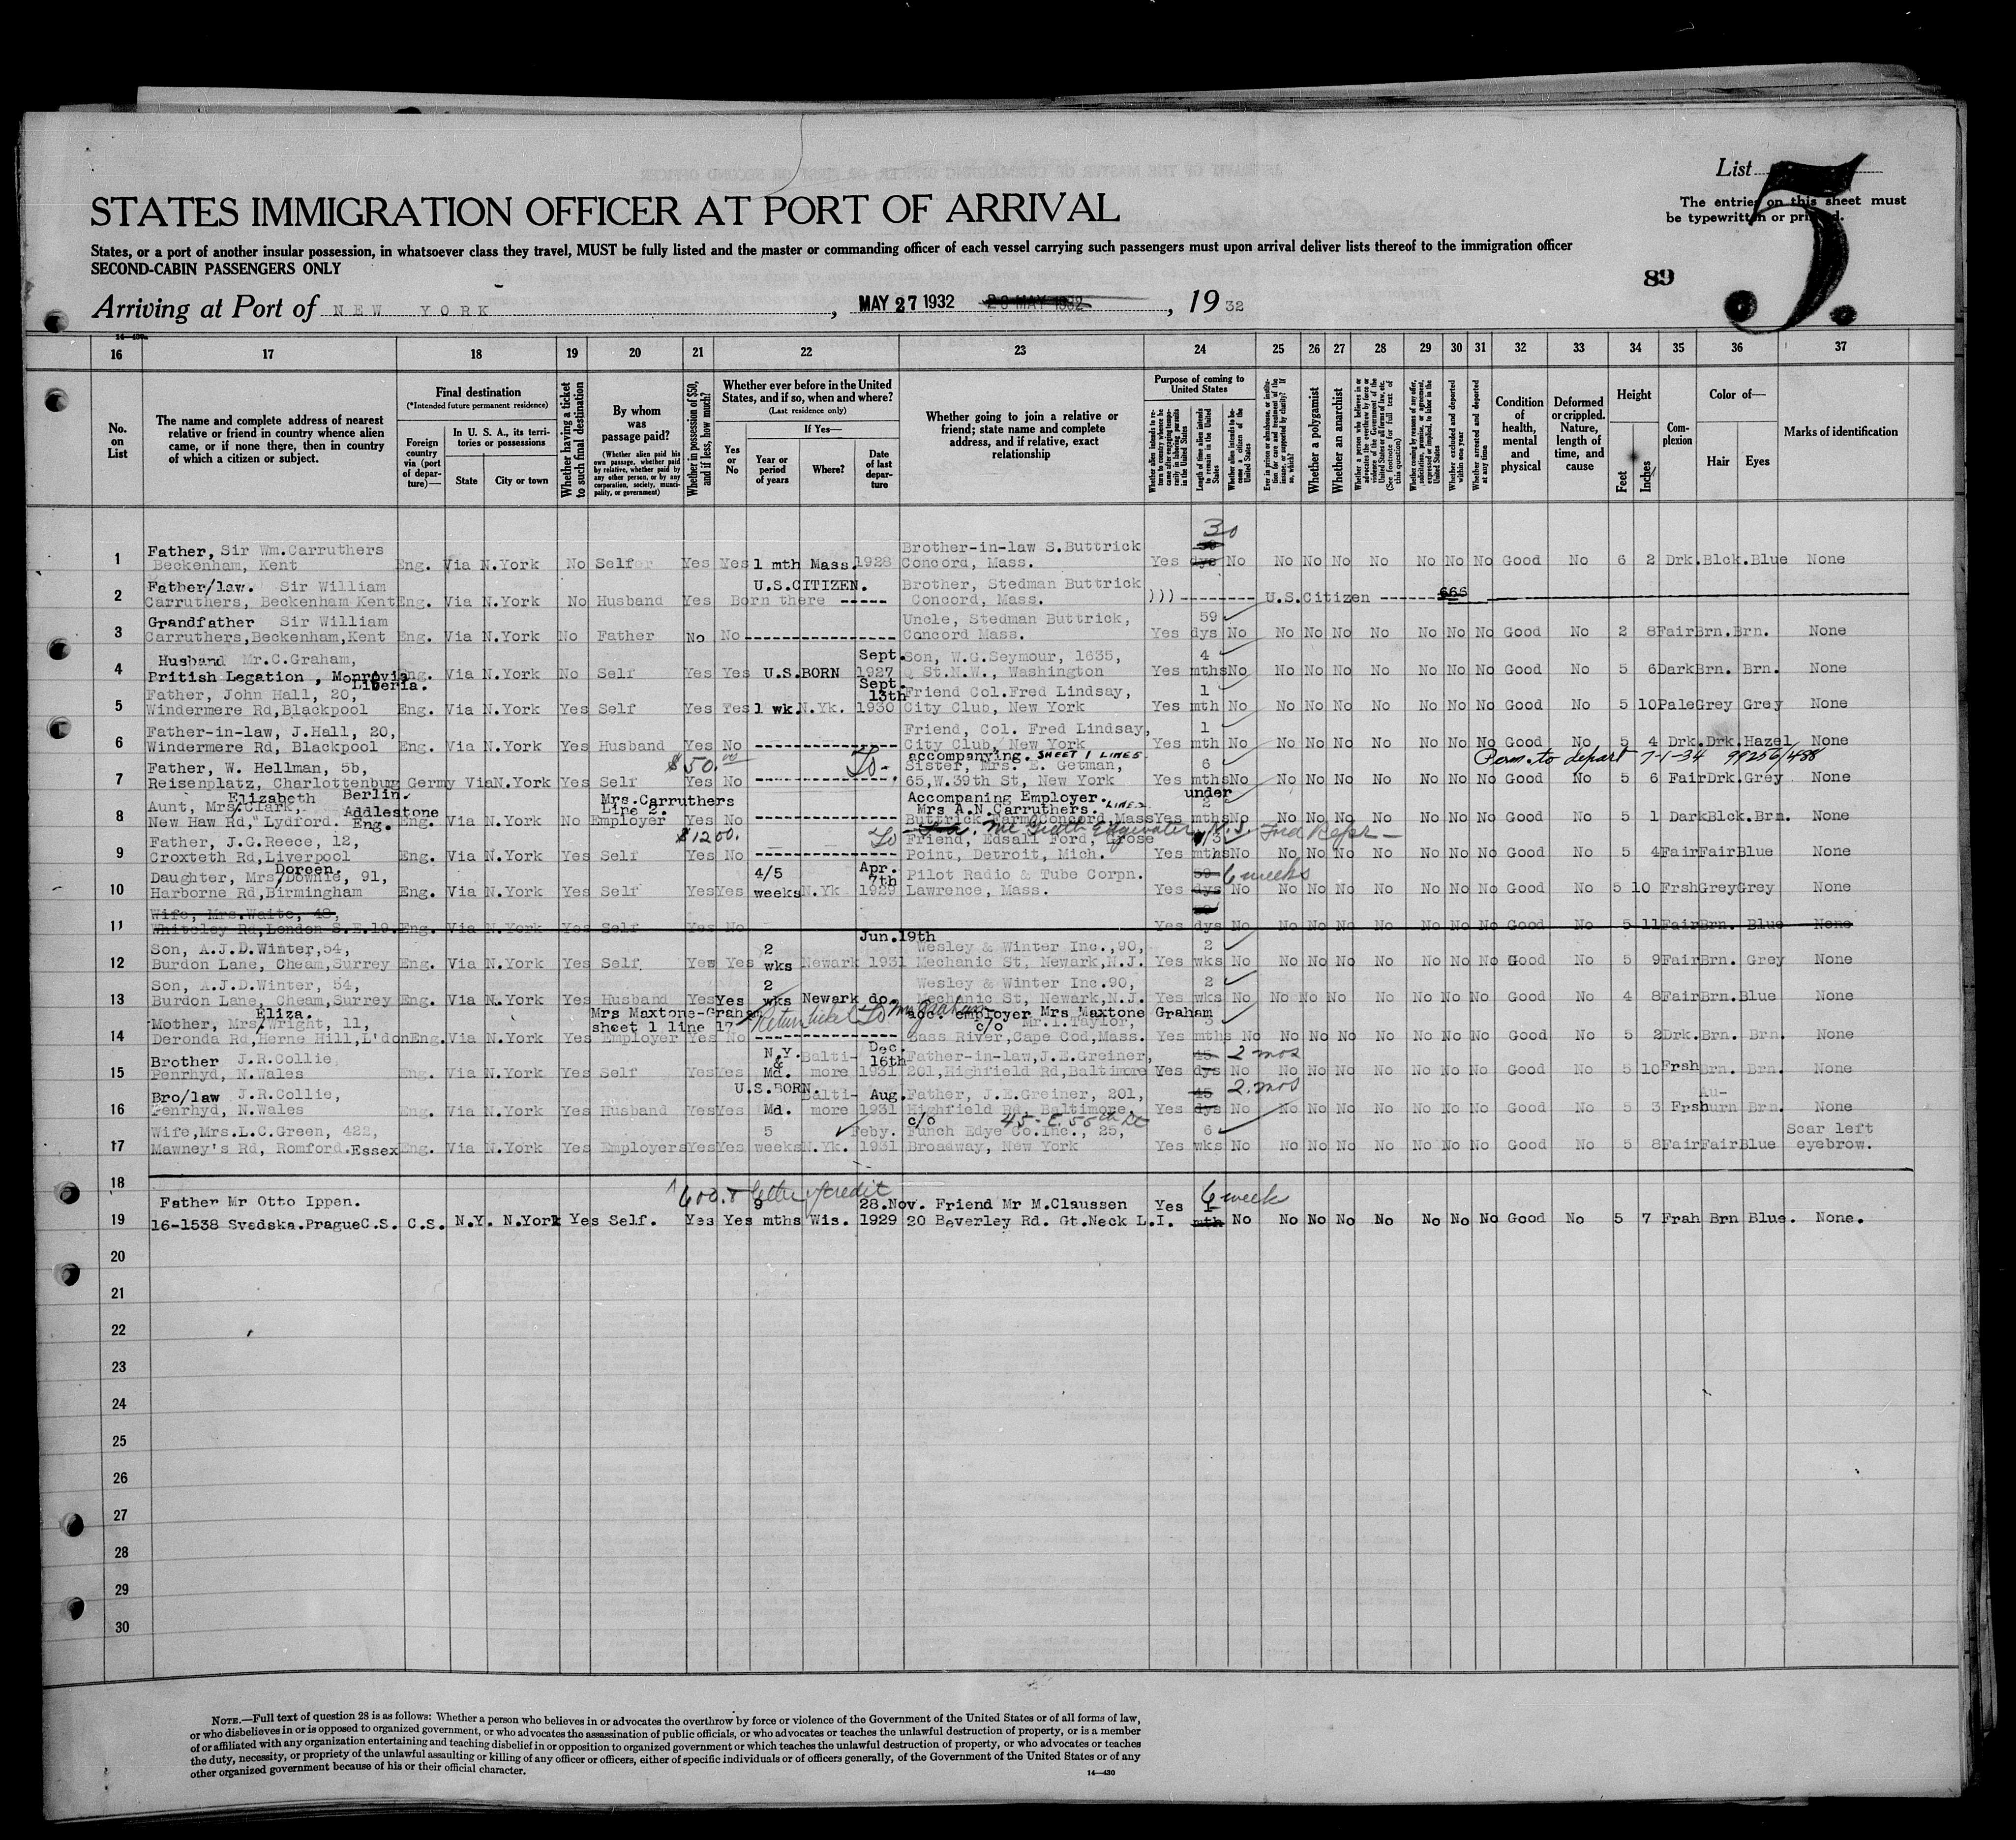 List 5.
STATES IMMIGRATION OFFICER AT PORT OF ARRIVAL
The entries on this sheet must
be typewritten or printed.
States, or a port of another insular possession, in whatsoever class they travel, MUST be fully listed and the master or commanding officer of each vessel carrying such passengers must upon arrival deliver lists thereof to the immigration officer
SECOND-CABIN PASSENGERS ONLY
89
Arriving at Port of NEW YORK, MAY 27 1932 , 1932
14-430
16 17 18 19 20 21 22 23 24 25 26 27 28 29 30 31 32 33 34 35 36 37
No. on List
The name and complete address of nearest relative or friend in country whence alien came, or if none there, then in country of which a citizen or subject.
Final destination
(*Intended future permanent residence)
Foreign country via (port of departure)—
In U. S. A., its territories or possessions
State
City or town
Whether having a ticket to such final destination
By whom was passage paid?
(Whether alien paid his own passage, whether paid by relative, whether paid by any other person, or by any corporation, society, municipality, or government)
Whether in possession of $50, and if less, how much?
Whether ever before in the United States, and if so, when and where?
(Last residence only)
Yes or No
If Yes—
Year or period of years
Where?
Date of last departure
Whether going to join a relative or friend; state name and complete address, and if relative, exact relationship
Purpose of coming to United States
Length of time alien intends to remain in the United States
Whether alien intends to become a citizen of the United States
Whether a polygamist
Whether an anarchist
Whether excluded and deported within one year
Whether arrested and deported at any time
Condition of health, mental and physical
Deformed or crippled. Nature, length of time, and cause
Height
Feet
Inches
Complexion
Color of—
Hair
Eyes
Marks of identification
30
Father, Sir Wm.Carruthers Brother-in-law S.Buttrick
1 Beckenham, Kent Eng. Via N.York No Self Yes Yes 1 mth Mass. 1928 Concord, Mass. Yes dys No No No No No No No No Good No 6 2 Drk. Blck. Blue None
Father/law. Sir William U.S.CITIZEN. Brother, Stedman Buttrick
2 Carruthers, Beckenham Kent Eng. Via N.York No Husband Yes Born there ----- Concord, Mass. ))) --------- U.S.Citizen -------
Grandfather Sir William Uncle, Stedman Buttrick, 59
3 Carruthers,Beckenham,Kent Eng. Via N.York No Father No No Concord Mass. Yes dys No No No No No No No No Good No 2 8 Fair Brn. Brn. None
Husband Mr.C.Graham, Sept. Son, W.G.Seymour, 1635, 4
4 British Legation, Monrovia Liberia. Eng. Via N.York No Self Yes Yes U.S.BORN 1927 Q St.N.W., Washington Yes mths No No No No No No No No Good No 5 6 Dark Brn. Brn. None
Father, John Hall, 20, Sept. 13th Friend Col.Fred Lindsay, 1
5 Windermere Rd,Blackpool Eng. Via N.York Yes Self Yes Yes 1 wk. N.Yk. 1930 City Club, New York Yes mth No No No No No No No No Good No 5 10 Pale Grey Grey None
Father-in-law, J.Hall, 20, Friend, Col. Fred Lindsay, 1
6 Windermere Rd, Blackpool Eng. Via N.York Yes Husband Yes No City Club, New York Yes mth No No No No No No No No Good No 5 4 Drk. Drk. Hazel None
accompanying. SHEET 1 LINE 5 Perm. to depart 7-1-34 99256/488
Father, W. Hellman, 5b, $50.00 To- Sister, Mrs. E. Getman, 6
7 Reisenplatz, Charlottenburg Berlin. Germy Via N.York Yes Self Yes No 65,W.39th St, New York Yes mths No No No No No No No No Good No 5 6 Fair Drk. Grey None
Elizabeth Mrs.Carruthers Line 2. Accompaning Employer. LINE 2 under
Aunt, Mrs/Clark, Addlestone Mrs A.N.Carruthers. 2
8 New Haw Rd,"Lydford. Eng. Eng. Via N.York No Employer Yes No Buttrick Farm,Concord,Mass Yes mths No No No No No No No No Good No 5 1 Dark Blck. Brn. None
Father, J.G.Reece, 12, $1200. To Friend, Edsall Ford, Grose 3
9 Croxteth Rd,Liverpool Eng. Via N.York Yes Self Yes No Point, Detroit, Mich. Yes mths No No No No No No No No Good No 5 4 Fair Fair Blue None
Doreen.
Daughter, Mrs/Downie, 91, 4/5 Apr. 7th Pilot Radio & Tube Corpn. 6 weeks
10 Harborne Rd,Birmingham Eng. Via N.York Yes Self Yes Yes weeks N.Yk 1929 Lawrence, Mass. Yes dys No No No No No No No No Good No 5 10 Frsh Grey Grey None
Wife, Mrs.Waite, 48,
11 Whiteley Rd,London S.E.19. Eng. Via N.York Yes Self Yes No Yes dys No No No No No No No No Good No 5 11 Fair Brn. Blue None
Son, A.J.D.Winter,54, 2 Jun.19th Wesley & Winter Inc.,90, 2
12 Burdon Lane, Cheam,Surrey Eng. Via N.York Yes Self Yes Yes wks Newark 1931 Mechanic St, Newark,N.J. Yes wks No No No No No No No No Good No 5 9 Fair Brn. Grey None
Son, A.J.D.Winter, 54, 2 Wesley & Winter Inc.90, 2
13 Burdon Lane, Cheam,Surrey Eng. Via N.York Yes Husband Yes Yes wks Newark do. Mechanic St, Newark,N.J. Yes wks No No No No No No No No Good No 4 8 Fair Brn. Blue None
Eliza. Mrs Maxtone-Graham sheet 1 line 17 Return ticket To Mrs Graham acc. employer Mrs Maxtone Graham
Mother, Mrs/Wright, 11, c/o Mr.I.Taylor, 3
14 Deronda Rd,Herne Hill,L'don Eng. Via N.York Yes Employer Yes No Bass River,Cape Cod,Mass. Yes mths No No No No No No No No Good No 5 2 Drk. Brn. Brn. None
Brother J.R.Collie, N.Y. & Balti- Dec. 16th Father-in-law,J.E.Greiner, 45 2 mos
15 Penrhyd, N.Wales Eng. Via N.York Yes Self Yes Yes Md. more 1931 201,Highfield Rd,Baltimore Yes dys No No No No No No No No Good No 5 10 Frsh Brn. Brn. None
Bro/law J.R.Collie, U.S.BORN. Balti- Aug. Father, J.E.Greiner, 201, 45 2 mos Au-
16 Penrhyd, N.Wales Eng. Via N.York Yes Husband Yes Yes Md. more 1931 Highfield Rd, Baltimore, Yes dys No No No No No No No No Good No 5 3 Frsh burn Brn. None
c/o 45-E.55th St
Wife,Mrs.L.C.Green, 422, 5 Feby. Funch Edye Co.Inc., 25, 6 Scar left
17 Mawney's Rd, Romford.Essex Eng. Via N.York Yes Employers Yes Yes weeks N.Yk. 1931 Broadway, New York Yes wks No No No No No No No No Good No 5 8 Fair Fair Blue eyebrow.
18
600. letter of credit
Father Mr Otto Ippen. 9 28.Nov. Friend Mr M.Claussen Yes 6 week
19 16-1538 Svedska.Prague C.S. C.S. N.Y. N.York Yes Self. Yes Yes mths Wis. 1929 20 Beverley Rd. Gt.Neck L.I. mth No No No No No No No No Good No 5 7 Frah Brn Blue. None.
20
21
22
23
24
25
26
27
28
29
30
NOTE.—Full text of question 28 is as follows: Whether a person who believes in or advocates the overthrow by force or violence of the Government of the United States or of all forms of law,
or who disbelieves in or is opposed to organized government, or who advocates the assassination of public officials, or who advocates or teaches the unlawful destruction of property, or is a member
of or affiliated with any organization entertaining and teaching disbelief in or opposition to organized government or which teaches the unlawful destruction of property, or who advocates or teaches
the duty, necessity, or propriety of the unlawful assaulting or killing of any officer or officers, either of specific individuals or of officers generally, of the Government of the United States or of any
other organized government because of his or their official character.
14—430